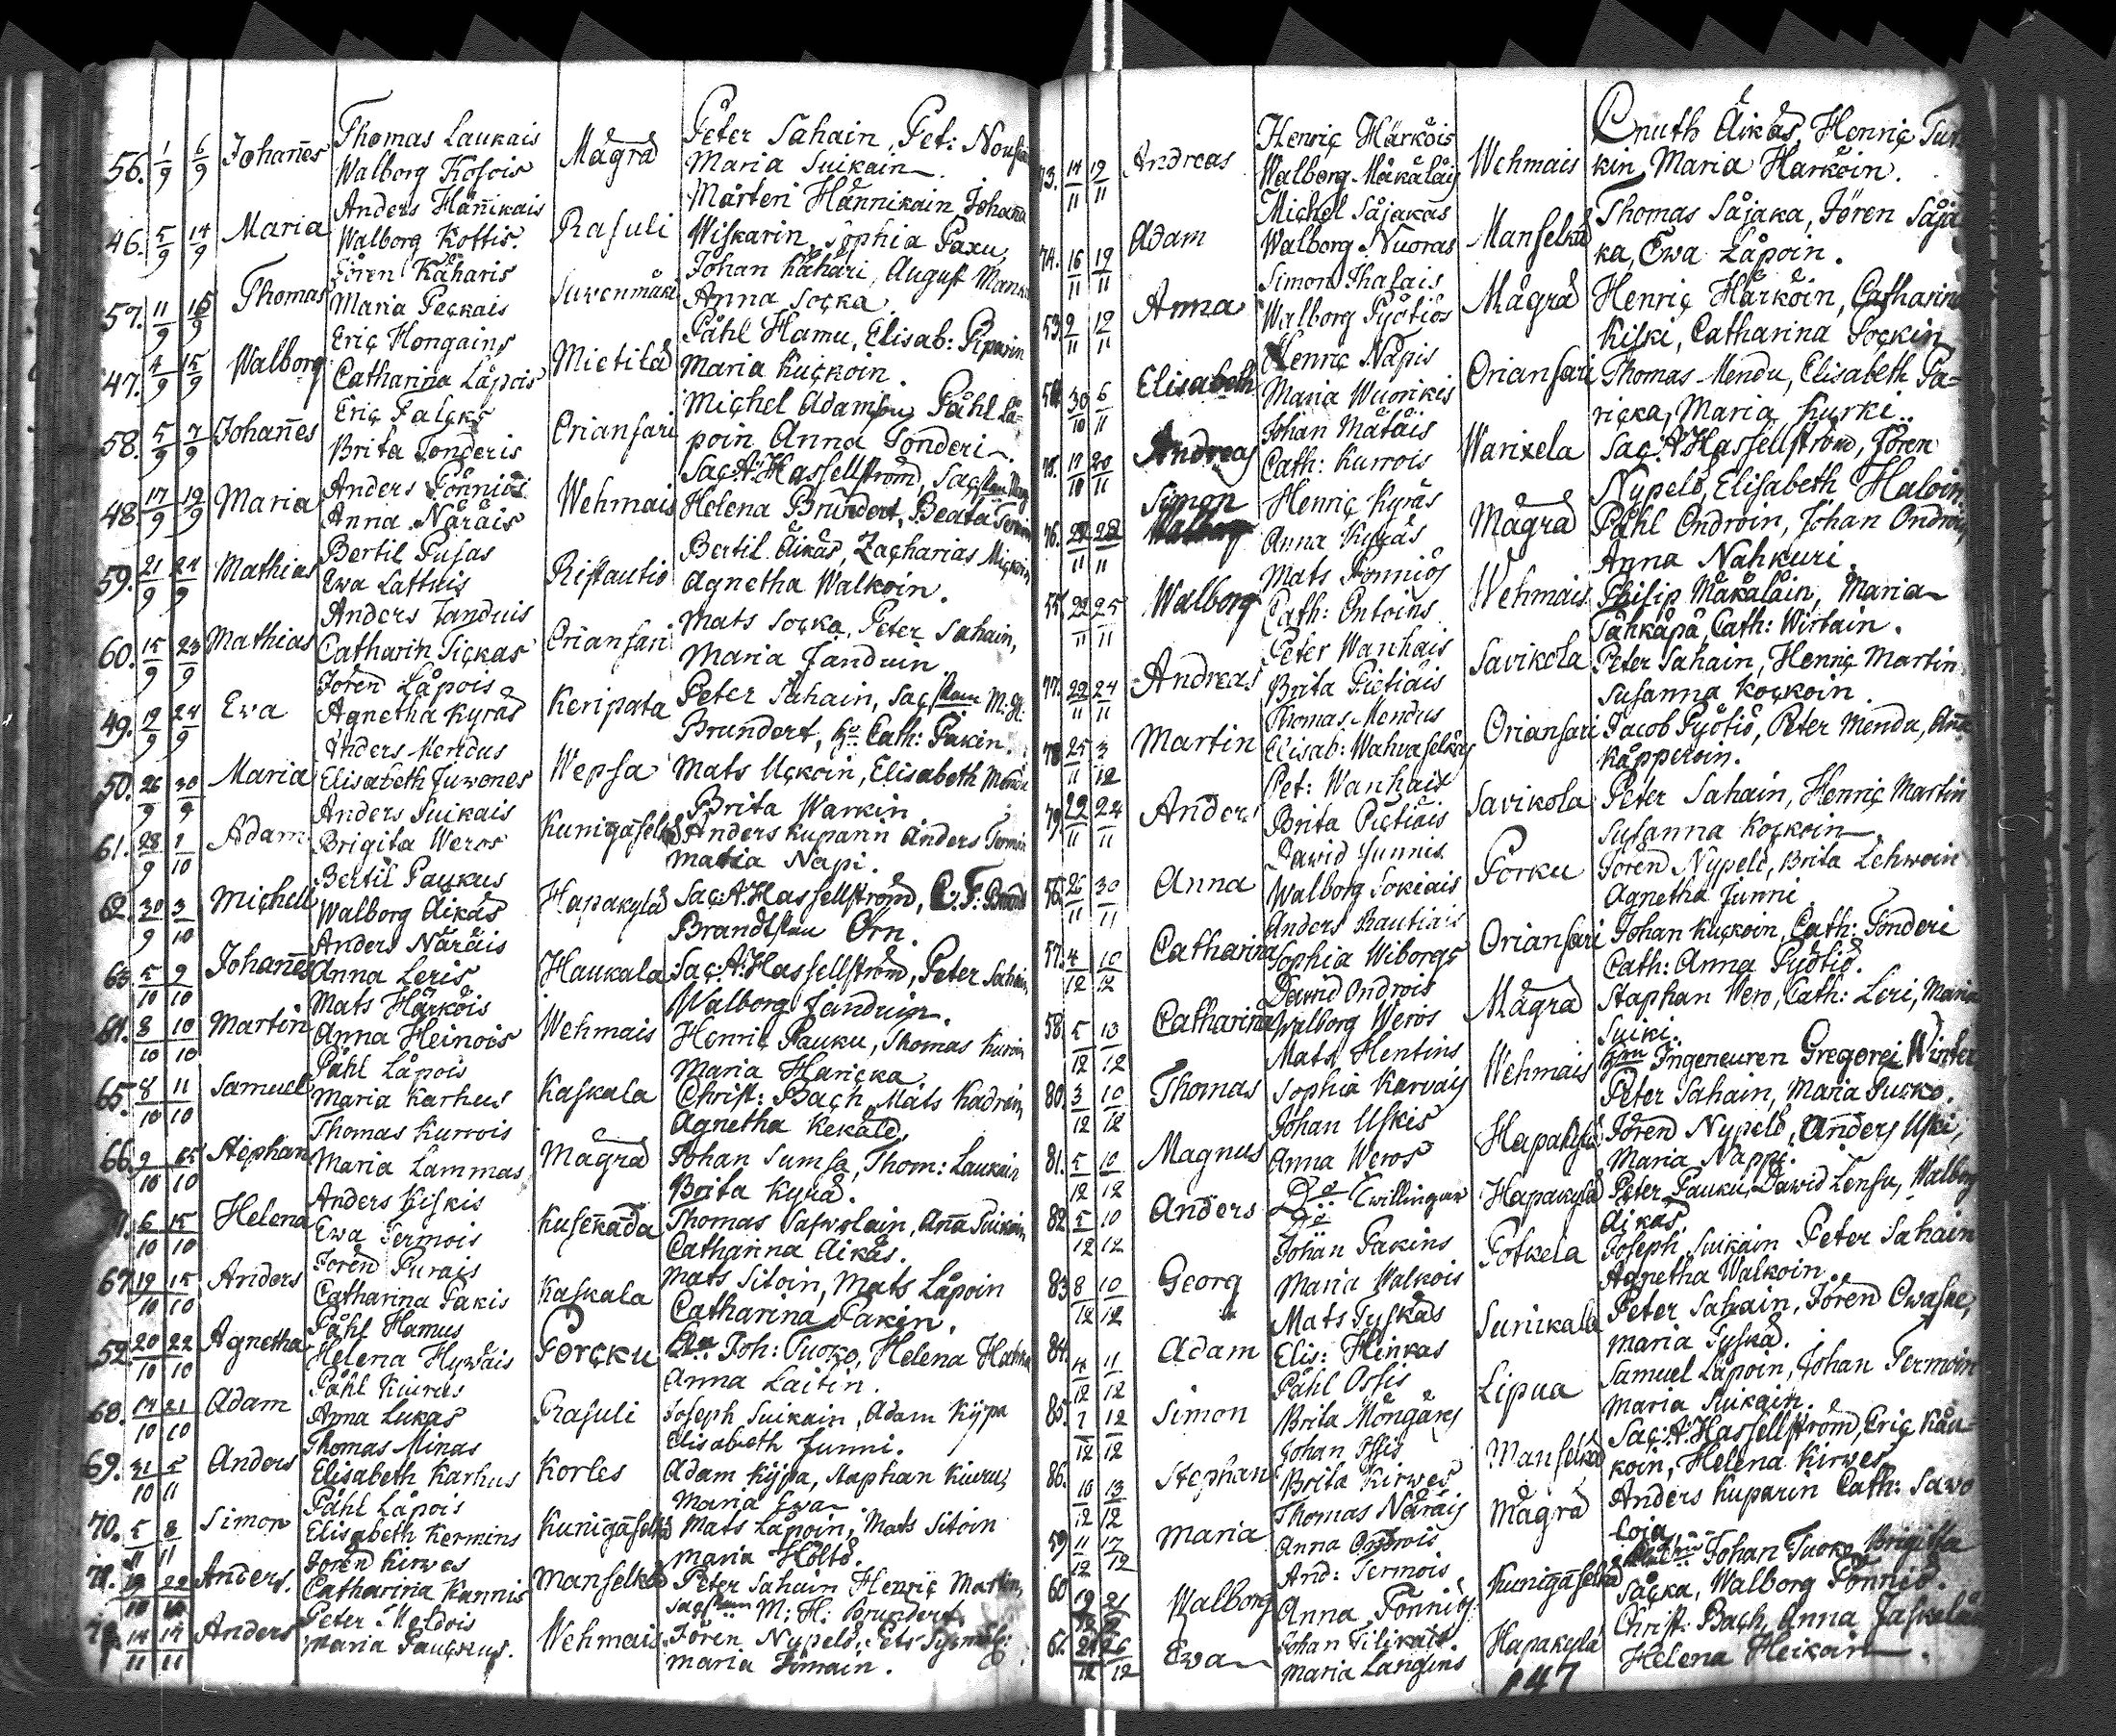 56. 1/9 6/9 Johañes Thomas Laukais Walborg Kosois Mägrä Peter Sahain, Pet:
Maria Suikain
46. 5/9 14/9 Maria Anders Häñikais Walborg Kottis. Rasuli Mårten Hännikain Johana
Wiskarin, Sophia Paxu,
57. 11/9 15/9 Thomas Jören Käharis Maria Peckais Suwenmäki Johan Kähäri, August
Anna Socka
47. 4/9 15/9 Walborg Eric Hongains Catharina Låpois Mietilä Påhl Hamu, Elisab: Piparin
Maria Kuckoin.
58. 5/9 7/9 Johañes Eric Falcks Brita Tonderis Oriansari Michel Adamsou, Påhl Lå-
poin Anna Tonderi.
48. 17/9 19/9 Maria Anders Pönniös Anna Näräis Wehmais Sac: A: Hassellström,
Helena Brundert, Beata
59. 21/9 24/9 Mathias Bertil Pusas Ewa Lattuis Ristautio Bertil Äikäs, Zacharias
Agnetha Walkoin.
60. 15/9 23/9 Mathias Anders Janduis Catharin Tickas Oriansari Mats Socka, Peter Sahain,
Maria Janduin
49. 19/9 24/9 Ewa Jören Låpois Agnetha Kyräs Keripata Peter Sahain, M: H:
Brundert, Cath: Pakin.
50. 26/9 30/9 Maria Anders Mendus Elisabeth Juwones Wepsa Mats Uckoin, Elisabeth
Brita Warkin
61. 28/9 1/10 Adam Anders Suikais Brigita Weros Kunigaselkä Anders Kupann Anders
Maria Napi.
62. 30/9 3/10 Michell Bertil Paukus Walborg Aikäs Hapakylä Sac: A: Hassellström,
Brandtstau Örn.
63. 5/10 9/10 Johañes Anders Näräis Anna Leris Haukala Sac: A: Hassellström, Peter Sahain,
Walborg Janduin.
64. 8/10 10/10 Martin Mats Härköis Anna Heinois Wehmais Henric Pauku, Thomas
Maria Haricka
65. 8/10 11/10 Samuel Påhl Låpois Maria Karhus Kaskala Christ: Bach, Mats Kadrin,
Agnetha Kekäle,
66. 9/10 15/10 Stephan Thomas Kurrois Maria Lammas Mägrä Johan Sumsa, Thom: Laukain
Brita Kyrä.
6/10 15/10 Helena Anders Kiskis Ewa Termois Kuseñada Thomas Anna Suikain,
Catharina Aikäs.
67. 12/10 15/10 Anders Jören Purais Catharina Pakis Kaskala Mats Sitoin, Mats Låpoin
Catharina Pakin.
52. 20/10 22/10 Agnetha Påhl Hamus Helena Hywäis Porcku Joh: Tuoko, Helena
Anna Laitin.
68. 14/10 21/10 Adam Påhl Kiurues Anna Lukas Rasuli Joseph Suikain, Adam Kijpa
Elisabeth Junni.
69. 31/10 5/11 Anders Thomas Minas Elisabeth Karhus Korles Adam Kijpa, Staphan Kiuru,
Maria Ewa
70. 5/11 8/11 Simon Påhl Låpois Elisabeth Kermins Kunigaselkä Mats Låpoin, Mats Sitoin
Maria Holto.
71. Anders. Jören Kirwes Catharina Kannis Manselkä Peter Sahain Henric Martin,
M: H: Brundert
14/11 17/11 Anders Peter Meldois Maria Pauckus. Wehmais Jören Nypelö,
Maria Jomain.
73. 14/11 19/11 Andreas Henric Härköis Walborg Mäkäläis Wehmais Cnuth Äikäs, Henric
kin, Maria Harköin.
74. 16/11 19/11 Adam Michel Säjäkäs Walborg Nuoras Manselkä Thomas Säjäkä, Jören Säjä
kä, Ewa Låpoin.
53. 9/11 12/11 Anna Simon Thalais Walborg Pyötiös Mägrä Henric Härköin, Catharina
Kiski, Catharina Pockin
54. 30/10 6/11 Elisabeth Henric Näpis Maria Wuorikis Oriansari Thomas Mendu, Elisabeth Pa-
ricka, Maria Kurki.
75. 17/10 20/11 Andreas Johan Mätäis Cath: Kurrois Warixela Sac: A: Hassellström, Jören
Nypelö, Elisabeth Haloin
76. 22/11 28/11 Simon Henric Kyräs Anna Kyräs Mägrä Påhl Ondroin, Johan Ondroin,
Anna Nahkuri.
55. 22/11 25/11 Walborg Mats Pönniös Cath: Ontoins Wehmais Philip Mäkäläin, Maria
Sähkäpä, Cath: Wirtain.
77. 22/11 24/11 Andreas Peter Wanhais Brita Pietiäis Savikola Peter Sahain, Henric Martin
Susanna Kockoin.
78. 25/11 3/12 Martin Thomas Mendus Elisab: Wahvaselkäs Oriansari Jacob Pyötiö, Peter Mendu, Aña
Käpperoin.
79. 22/11 24/11 Anders Pet: Wanhais Brita Pietiäis Savikola Peter Sahain, Henric Martin
Susanna Kockoin.
56. 26/11 30/11 Anna Dawid Junnis Walborg Sokiais Porku Jören Nypelö, Brita Lehwoin
Agnetha Junni.
57. 4/12 10/12 Catharina Anders Rautiais Sophia Wiborgs Oriansari Johan Kuckoin, Cath: Tonderi
Cath: Anna Pyötiö.
58. 5/12 13/12 Catharina Dawid Ondrois Walborg Weros Mägrä Staphan Wero, Cath: Leri, Maria
Suiki.
80. 3/12 10/12 Thomas Mats Hentins Sophia Karvais Wehmais Ingeneuren Gregorei Winter
Peter Sahain, Maria Tuoko.
81. 5/12 10/12 Magnus Johan Uskis Anna Weros Hapakylä Jören Nypelö, Anders Uski,
Maria Näppi.
82. 5/12 10/12 Anders Do Twillingar Do Hapakylä Peter Pauku, Dawid Lensu, Walborg
Aikäs.
83. 8/12 10/12 Georg Johan Pakins Maria Walkois Potkela Joseph Suikain Peter Sahain
Agnetha Walkoin.
84. 4/12 11/12 Adam Mats Tyskäs Elis: Hinkas Surikala Peter Sahain, Jören Owaske,
Maria Tyskä.
85. 7/12 12/12 Simon Påhl Ossis Brita Möngärs Lipua Samuel Låpoin, Johan Termoin
Maria Suikain.
86. 10/12 13/12 Stephan Johan Ossis Brita Kirwes Manselkä Sac: A: Hassellström, Eric Käu-
koin, Helena Kirwes
59. 11/12 17/12 Maria Thomas Näräis Anna Ondrois Mägrä Anders Kuparin Cath: Sawo
loia
60. Walborg And: Termois Anna Pönniös Kunigaselkä Johan Tuoko Brigitta
Säcka, Walborg Pönniö.
61. Ewa Johan Tilikais. Maria Langins Hapakylä Christ: Bach, Anna
Helena Heikain.
147